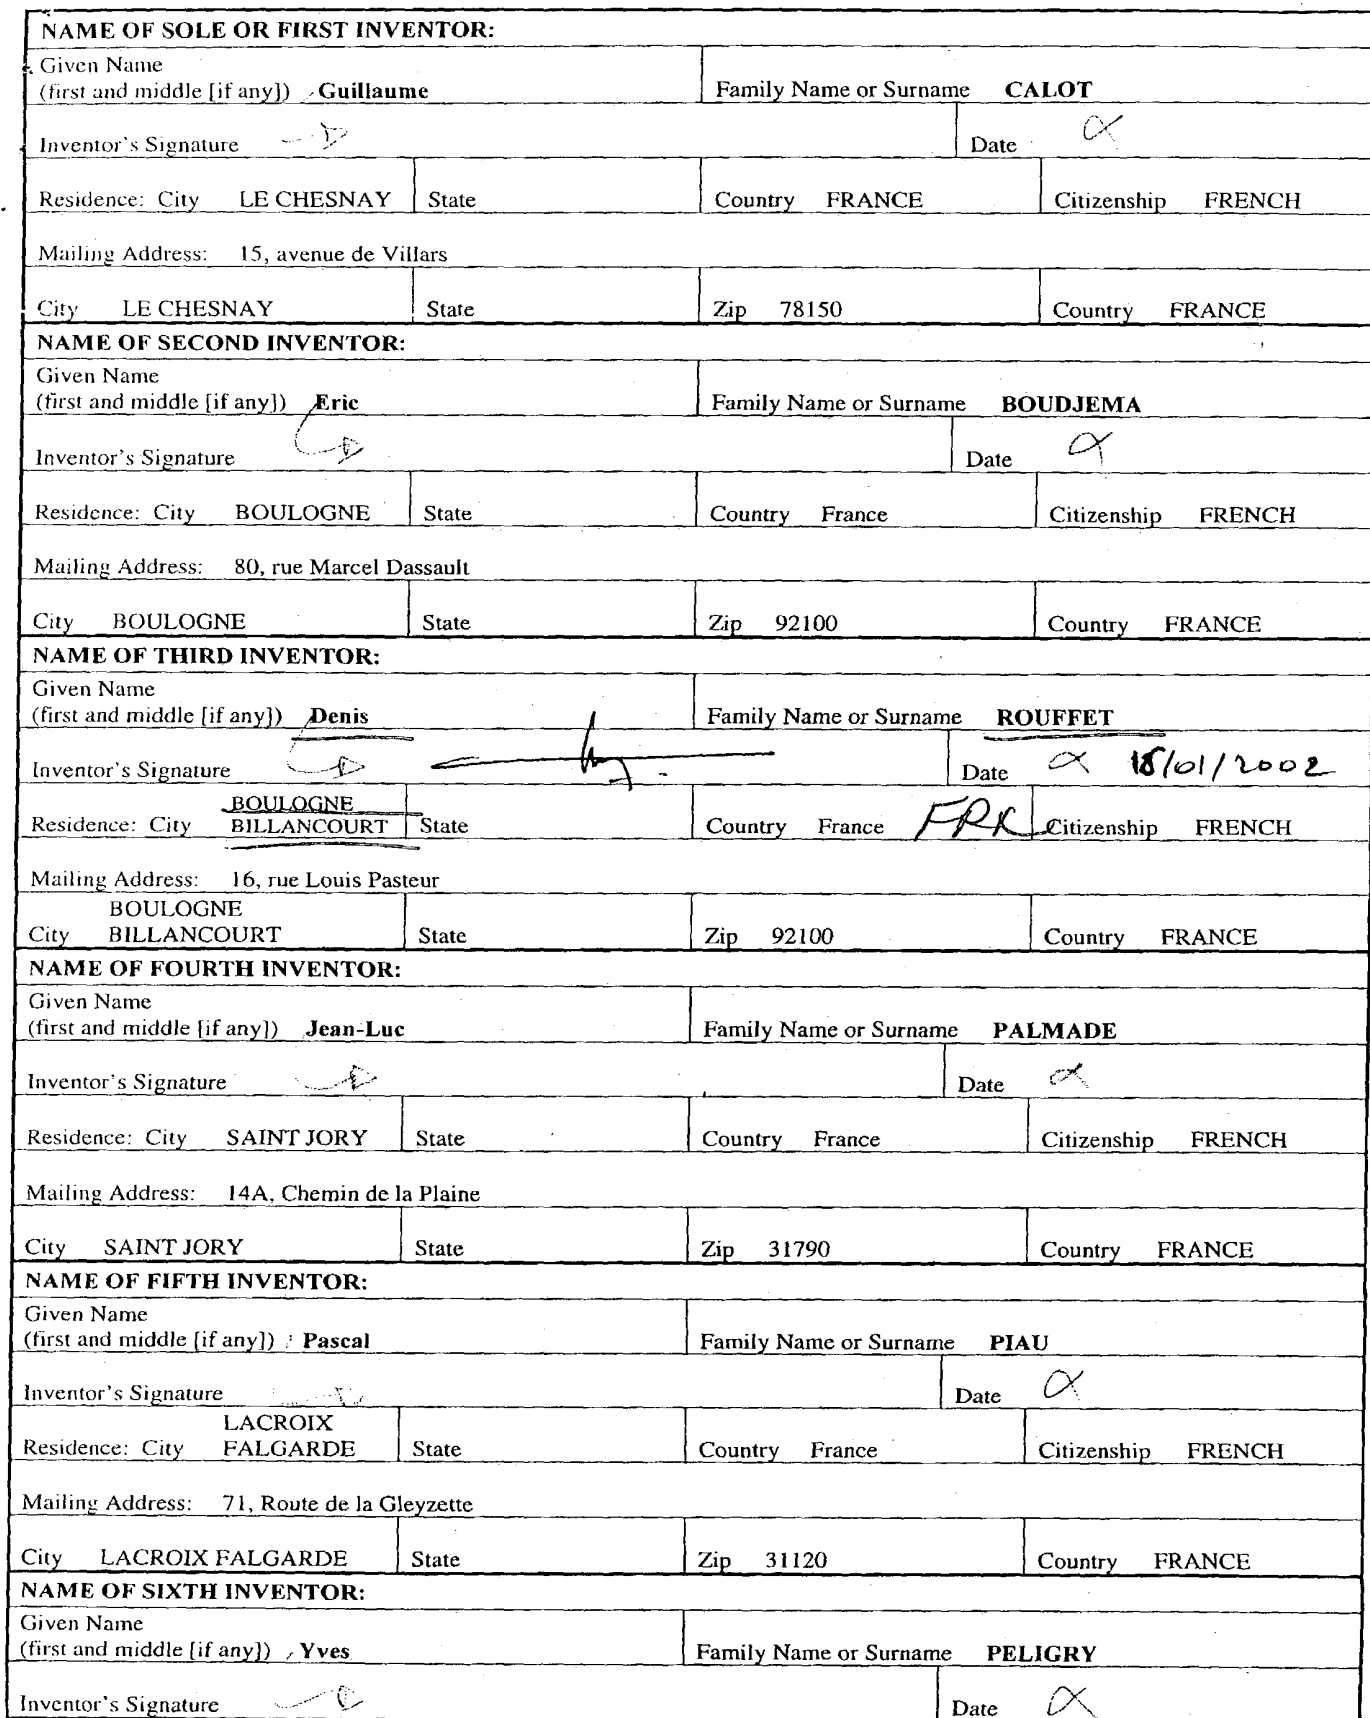 NAME OF SOLE OR FIRST INVENTOR:
Given Name
(first and middle [if any]) Guillaume Family Name or Surname CALOT
Inventor's Signature Date
Residence: City LE CHESNAY State Country FRANCE Citizenship FRENCH
Mailing Address: 15, avenue de Villars
City LE CHESNAY State Zip 78150 Country FRANCE
NAME OF SECOND INVENTOR:
Given Name
(first and middle [if any]) Eric Family Name or Surname BOUDJEMA
Inventor's Signature Date
Residence: City BOULOGNE State Country France Citizenship FRENCH
Mailing Address: 80, rue Marcel Dassault
City BOULOGNE State Zip 92100 Country FRANCE
NAME OF THIRD INVENTOR:
Given Name
(first and middle [if any]) Denis Family Name or Surname ROUFFET
Inventor's Signature Date 18/01/2002
BOULOGNE
Residence: City BILLANCOURT State Country France FRX Citizenship FRENCH
Mailing Address: 16, rue Louis Pasteur
BOULOGNE
City BILLANCOURT State Zip 92100 Country FRANCE
NAME OF FOURTH INVENTOR:
Given Name
(first and middle [if any]) Jean-Luc Family Name or Surname PALMADE
Inventor's Signature Date
Residence: City SAINT JORY State Country France Citizenship FRENCH
Mailing Address: 14A, Chemin de la Plaine
City SAINT JORY State Zip 31790 Country FRANCE
NAME OF FIFTH INVENTOR:
Given Name
(first and middle [if any]) Pascal Family Name or Surname PIAU
Inventor's Signature Date
LACROIX
Residence: City FALGARDE State Country France Citizenship FRENCH
Mailing Address: 71, Route de la Gleyzette
City LACROIX FALGARDE State Zip 31120 Country FRANCE
NAME OF SIXTH INVENTOR:
Given Name
(first and middle [if any]) Yves Family Name or Surname PELIGRY
Inventor's Signature Date